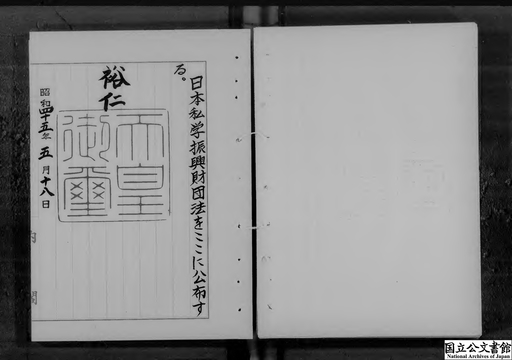 日本私学振興財団法をここに公布す
る。
裕仁
天皇
御璽
昭和四十五年五月十八日
内閣
国立公文書館
National Archives of Japan